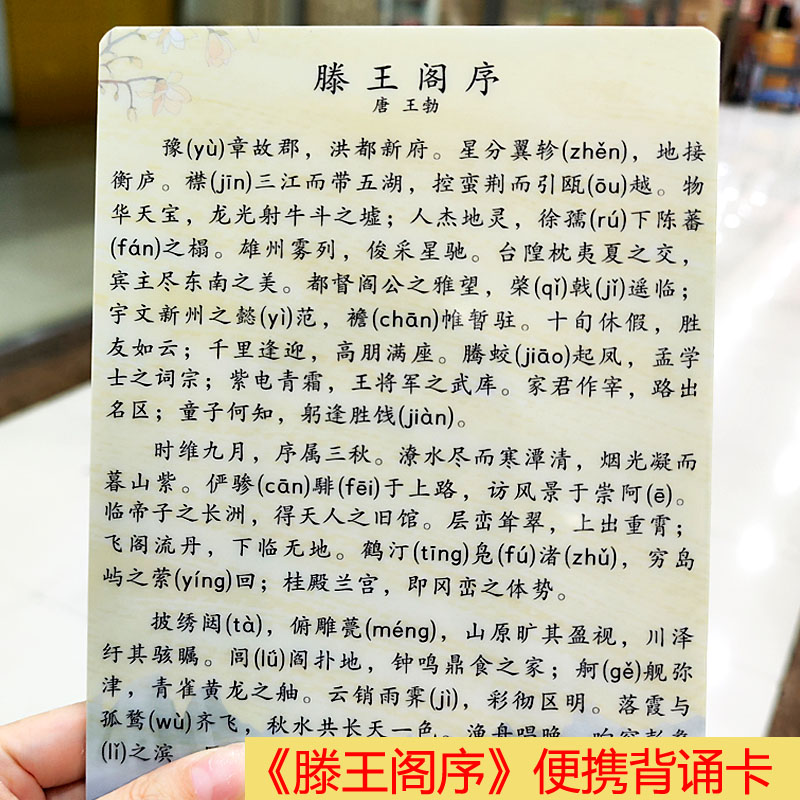 滕王阁序
唐 王勃
豫(yù)章故郡，洪都新府。星分翼轸(zhěn)，地接
衡庐。襟(jīn)三江而带五湖，控蛮荆而引瓯(ōu)越。物
华天宝，龙光射牛斗之墟；人杰地灵，徐孺(rú)下陈蕃
(fán)之榻。雄州雾列，俊采星驰。台隍枕夷夏之交，
宾主尽东南之美。都督阎公之雅望，棨(qǐ)戟(jǐ)遥临；
宇文新州之懿(yì)范，襜(chān)帷暂驻。十旬休假，胜
友如云；千里逢迎，高朋满座。腾蛟(jiāo)起凤，孟学
士之词宗；紫电青霜，王将军之武库。家君作宰，路出
名区；童子何知，躬逢胜饯(jiàn)。
时维九月，序属三秋。潦水尽而寒潭清，烟光凝而
暮山紫。俨骖(cān)騑(fēi)于上路，访风景于崇阿(ē)。
临帝子之长洲，得天人之旧馆。层峦耸翠，上出重霄；
飞阁流丹，下临无地。鹤汀(tīng)凫(fú)渚(zhǔ)，穷岛
屿之萦(yíng)回；桂殿兰宫，即冈峦之体势。
披绣闼(tà)，俯雕甍(méng)，山原旷其盈视，川泽
纡其骇瞩。闾(lǘ)阎扑地，钟鸣鼎食之家；舸(gě)舰弥
津，青雀黄龙之舳。云销雨霁(jì)，彩彻区明。落霞与
孤鹜(wù)齐飞，秋水共长天一色。渔舟唱晚，响穷彭蠡
(lǐ)之滨
《滕王阁序》便携背诵卡